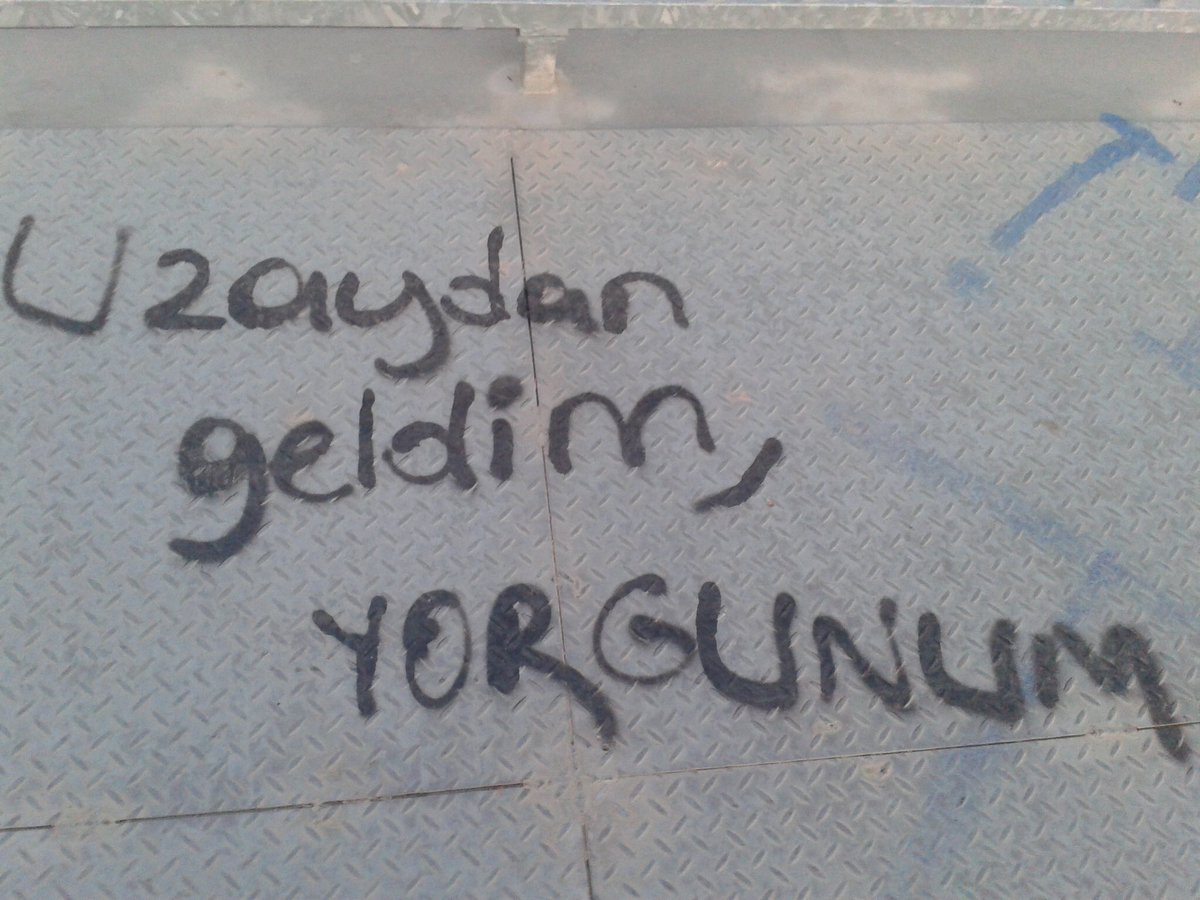 Uzaydan
geldim,
YORGUNUM